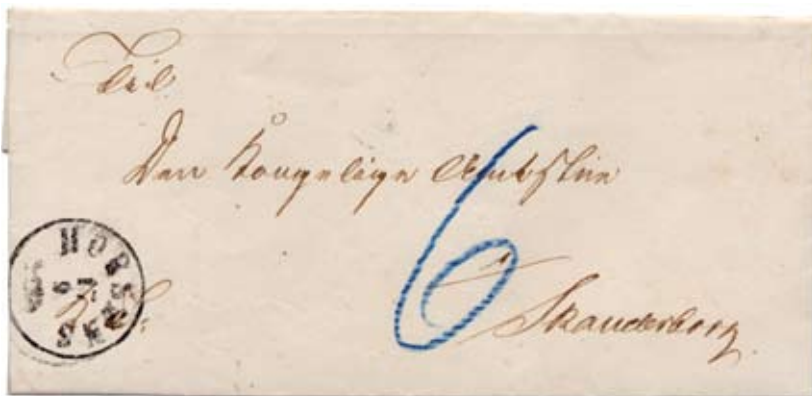 Til
Den Kongelige Amtstue
6
Skanderborg
HORSENS